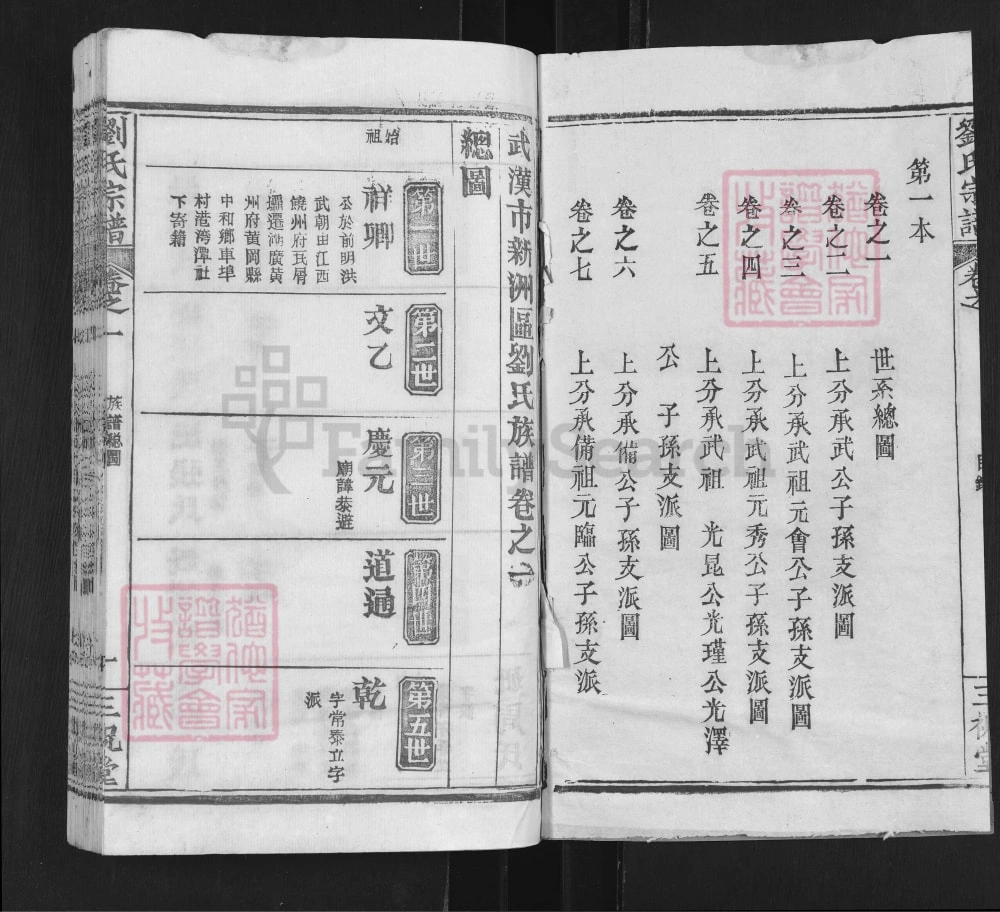 劉氏宗譜
卷之
目錄
三祝堂
第一本
卷之一 世系總圖
卷之二 上分承武公子孫支派圖
卷之三 上分承武祖元會公子孫支派圖
卷之四 上分承武祖元秀公子孫支派圖
卷之五 上分承武祖 光昆公光瑾公光澤
公 子孫支派圖
卷之六 上分承備公子孫支派圖
卷之七 上分承備祖元臨公子孫支派
武漢市新洲區劉氏族譜卷之一
總圖
第一世
始祖
祥卿
公於前明洪
武朝由江西
饒州府瓦屑
壩遷湖廣黃
州府黃岡縣
中和鄉車埠
村港灣潭社
下寄籍
第二世
文乙
第三世
慶元
廟諱恭避
第四世
道通
第五世
乾
字常泰立字
派
劉氏宗譜
卷之一
族譜總圖
一
三祝堂
FamilySearch